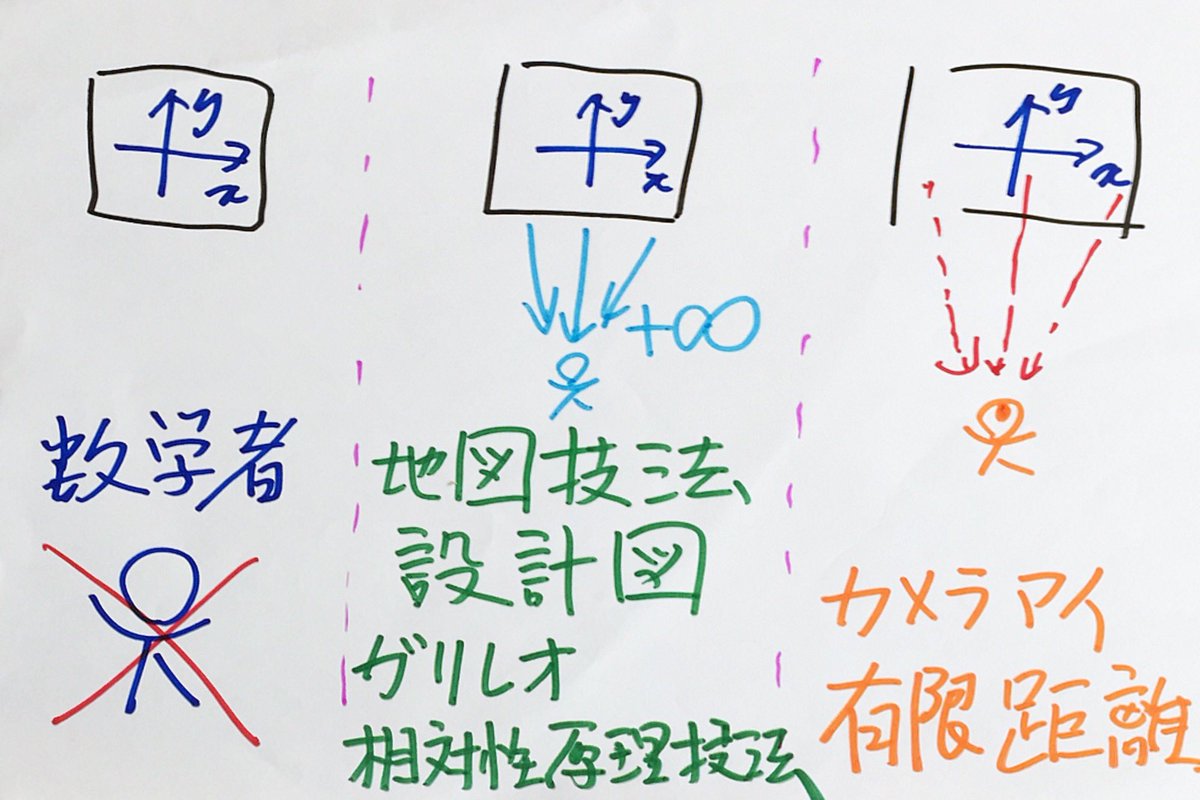 y
x
数学者
y
x
+∞
地図技法、
設計図
ガリレオ
相対性原理技法、
y
x
カメラアイ
有限距離